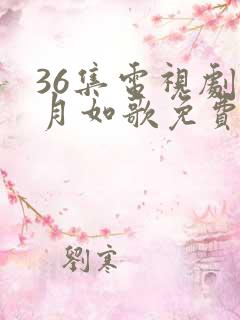 36集電視劇
月如歌免費
劉寒